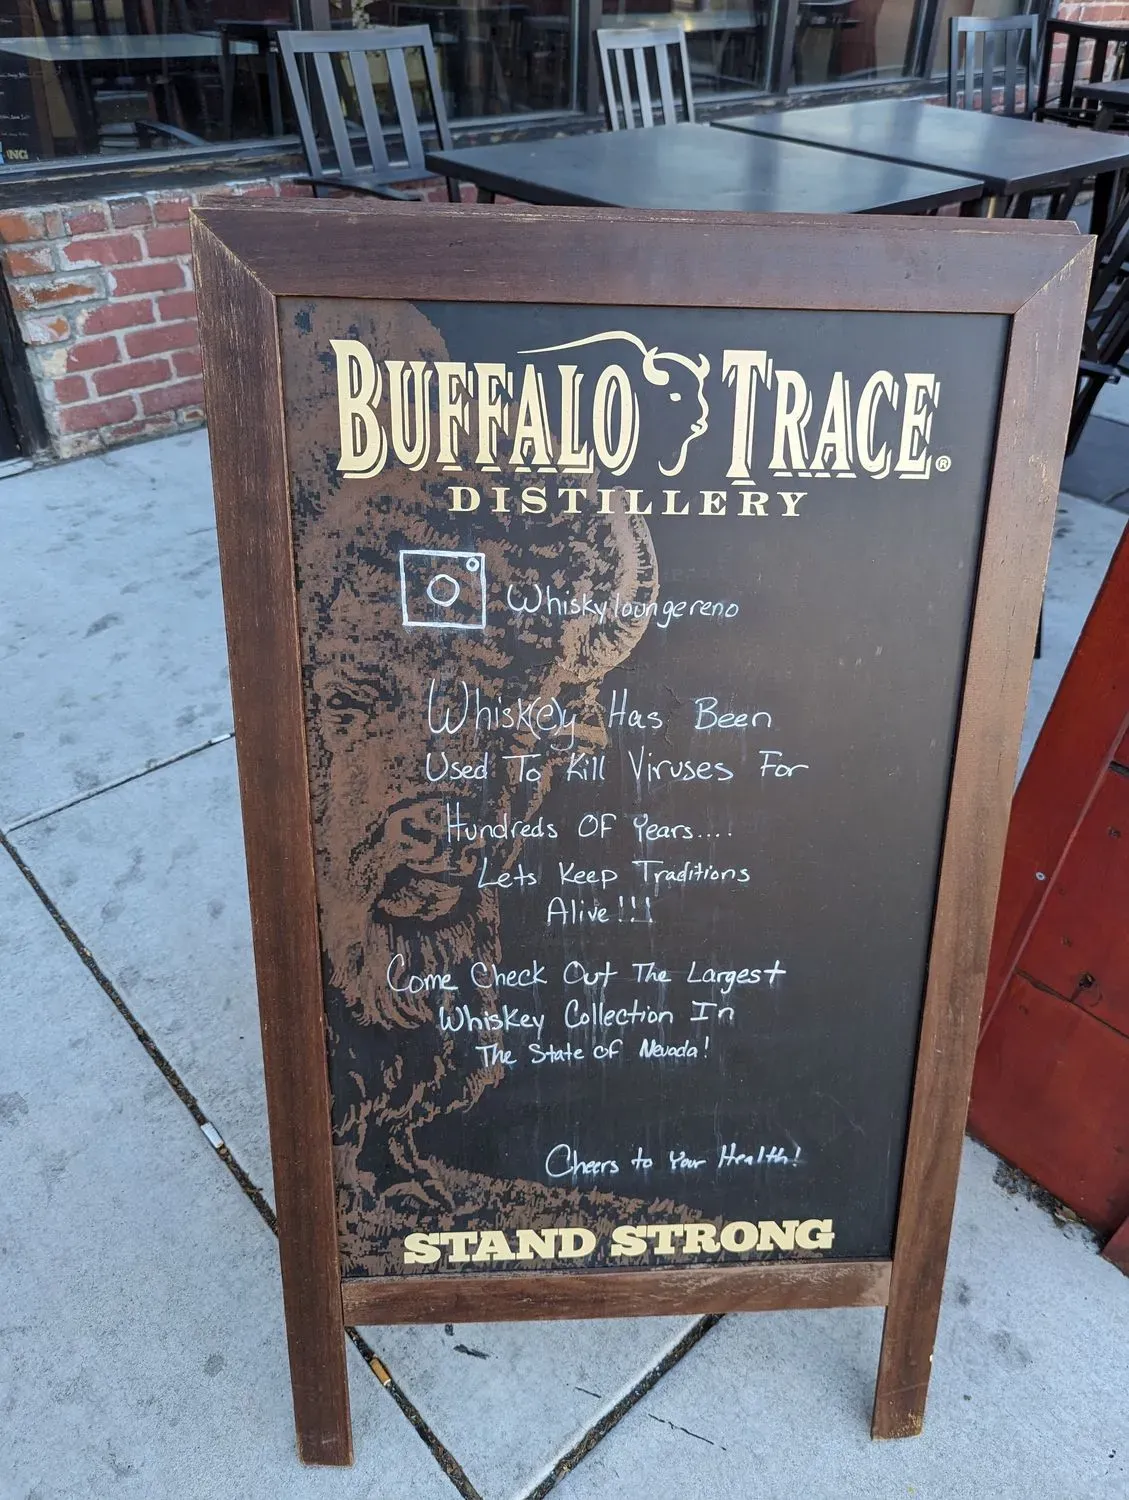 BUFFALO TRACE®
DISTILLERY
Whiskyloungereno
Whisk(e)y Has Been
Used To Kill Viruses For
Hundreds OF Years....
Lets Keep Traditions
Alive!!!
Come Check Out The Largest
Whiskey Collection In
The State OF Nevada!
Cheers to Your Health!
STAND STRONG